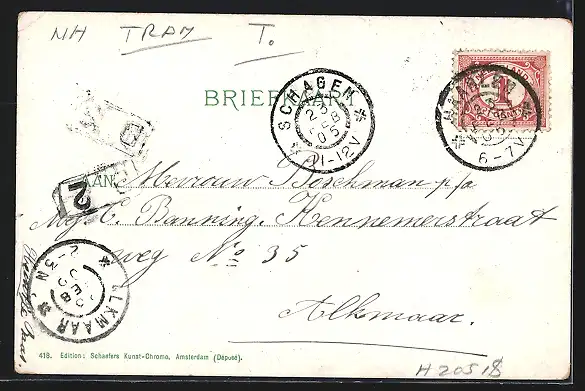 NH TRAM T.
BRIEFKAART
SCHAGEN
2 DEC
05
11-12V
HAARLEM
6-7V
1
2
AAN Mevrouw Boschman p/a
Mej. C. Banning. Kennemerstraat
weg No 35
Alkmaar.
ALKMAAR
DEC
418. Edition: Schaefers Kunst-Chromo, Amsterdam (Déposé).
H 20518